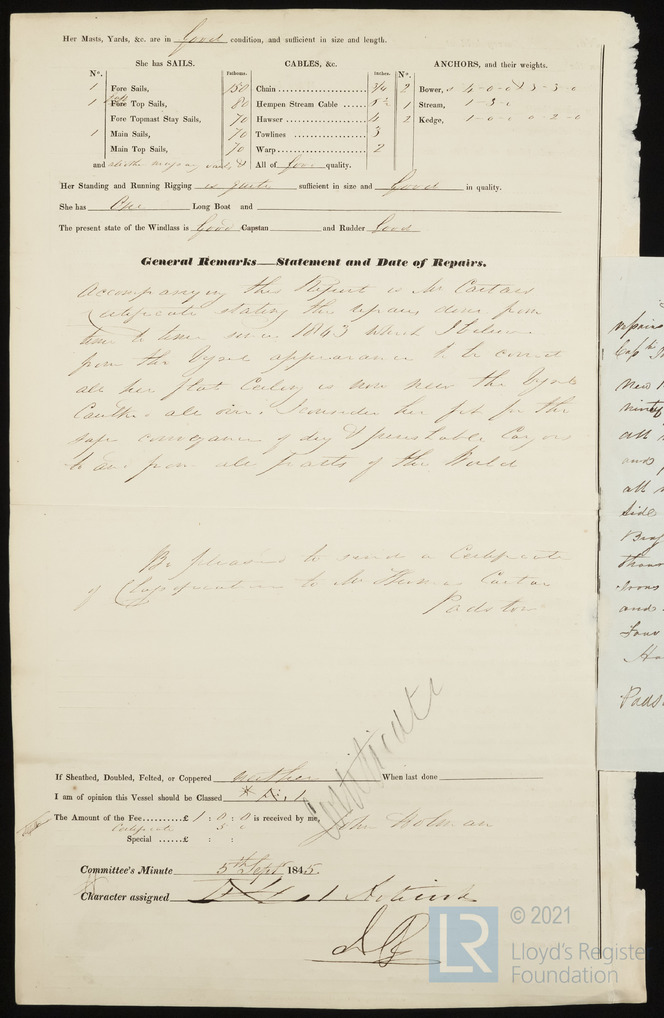 Her Masts, Yards, &c. are in Good condition, and sufficient in size and length.
She has SAILS. CABLES, &c. ANCHORS, and their weights.
N°. Fathoms. Inches. N°.
1 Fore Sails, 150 Chain 3/4 2 Bower,
1 Fore Top Sails, 80 Hempen Stream Cable 5½ 1 Stream, 1-3-0
Fore Topmast Stay Sails, 70 Hawser 4 2 Kedge,
1 Main Sails, 70 Towlines 3
Main Top Sails, 70 Warp 2
and All of Good quality.
Her Standing and Running Rigging is quite sufficient in size and Good in quality.
She has One Long Boat and
The present state of the Windlass is Good Capstan and Rudder Good
General Remarks—Statement and Date of Repairs.
Accompanying this Report is Mr Carters
Certificate stating the repairs done from
time to time since 1843 which I believe
from the appearance to be correct
all her flat Ceiling is now new the
I consider her fit for the
safe conveyance of dry & perishable Cargoes
to and from all parts of the World
Be pleased to send a Certificate
of Classification to Mr Thomas Carter
Padstow
Certificate
If Sheathed, Doubled, Felted, or Coppered neither When last done
I am of opinion this Vessel should be Classed
The Amount of the Fee £ 1 : 0 : 0 is received by me, John Holman
Certificate 5 0
Special £ : :
Committee's Minute 5th Sept 1845.
Character assigned
repairs
New
ninety
all
and
all
side
than
and
Four
Pads
© 2021
LR Lloyd's Register
Foundation